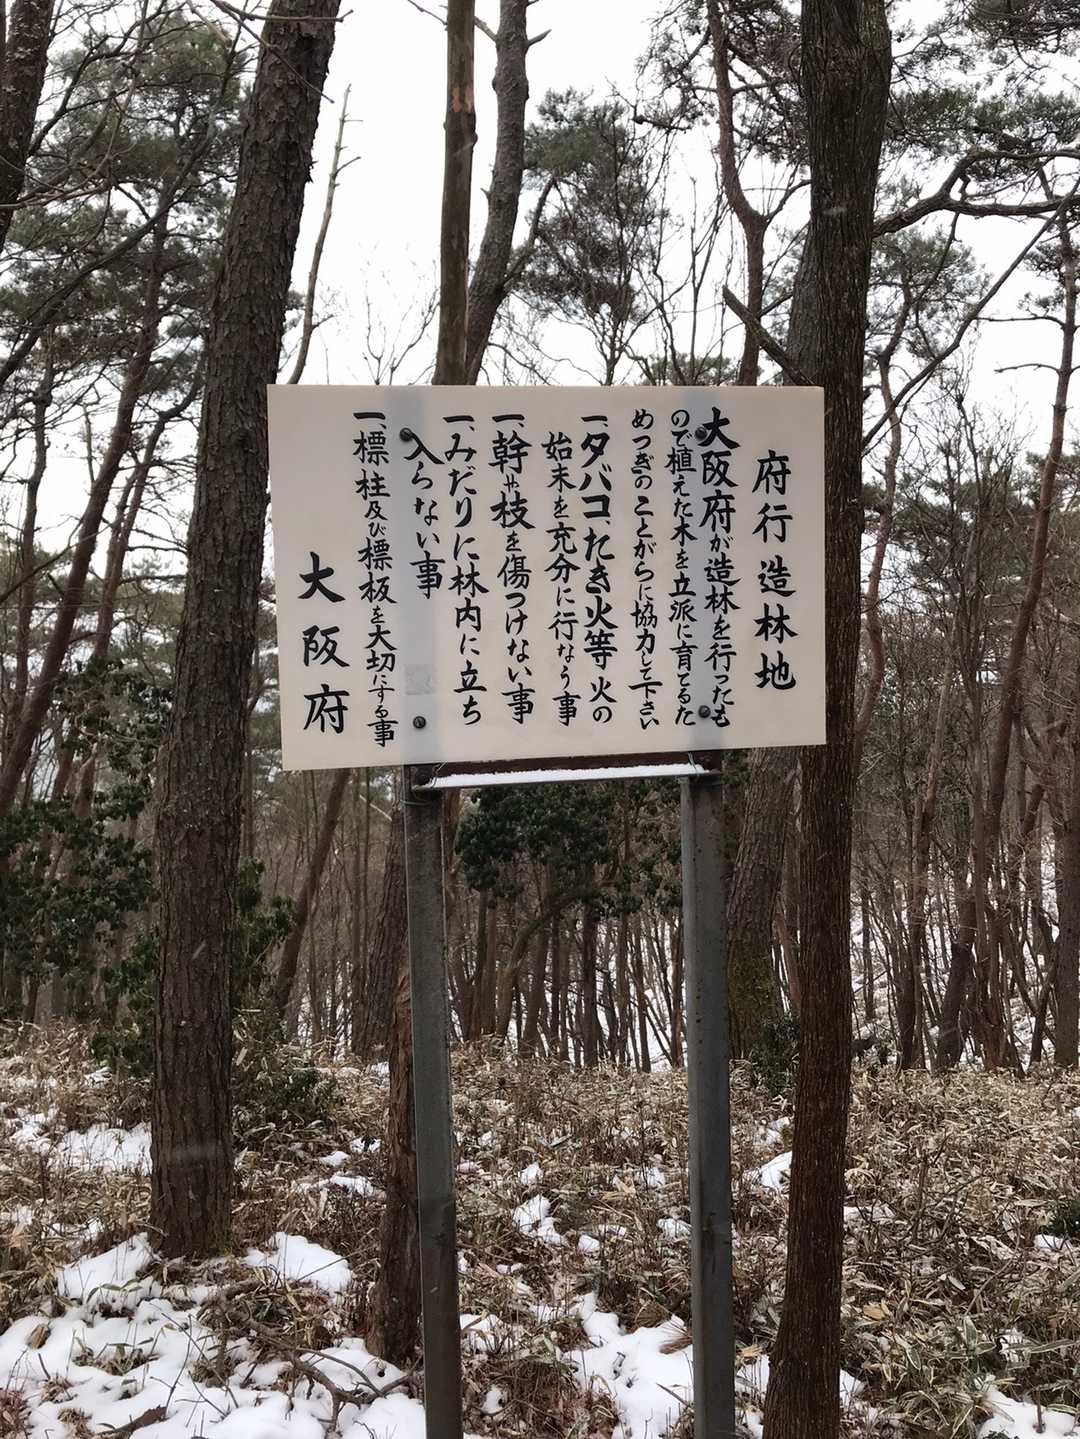 府行造林地
大阪府が造林を行ったも
ので植えた木を立派に育てるた
めつぎのことがらに協力して下さい
一、タバコ、たき火等火の
始末を充分に行なう事
一、幹や枝を傷つけない事
一、みだりに林内に立ち
入らない事
一、標柱及び標板を大切にする事
大阪府